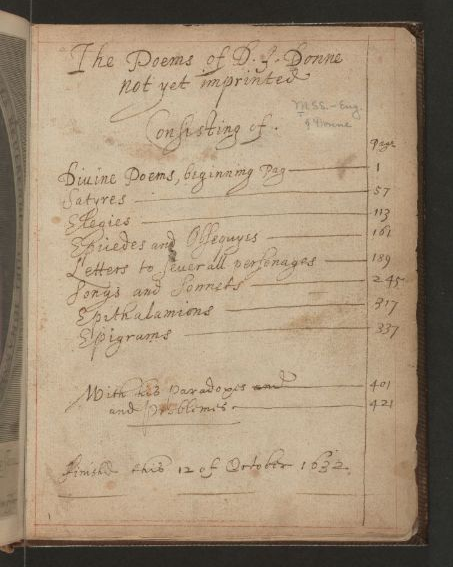 The Poems of D. J. Donne
not yet imprinted
MSS.-Eng.
Donne
Consisting of.
Page
Divine Poems, beginning Pag 1
Satyres 57
Elegies 113
Epicedes and Obsequyes 161
Letters to severall personages 189
Songs and Sonnets 245
Epithalamions 317
Epigrams 337
With his Paradoxes and 401
and Problemes. 421
finishd this 12 of October 1632.